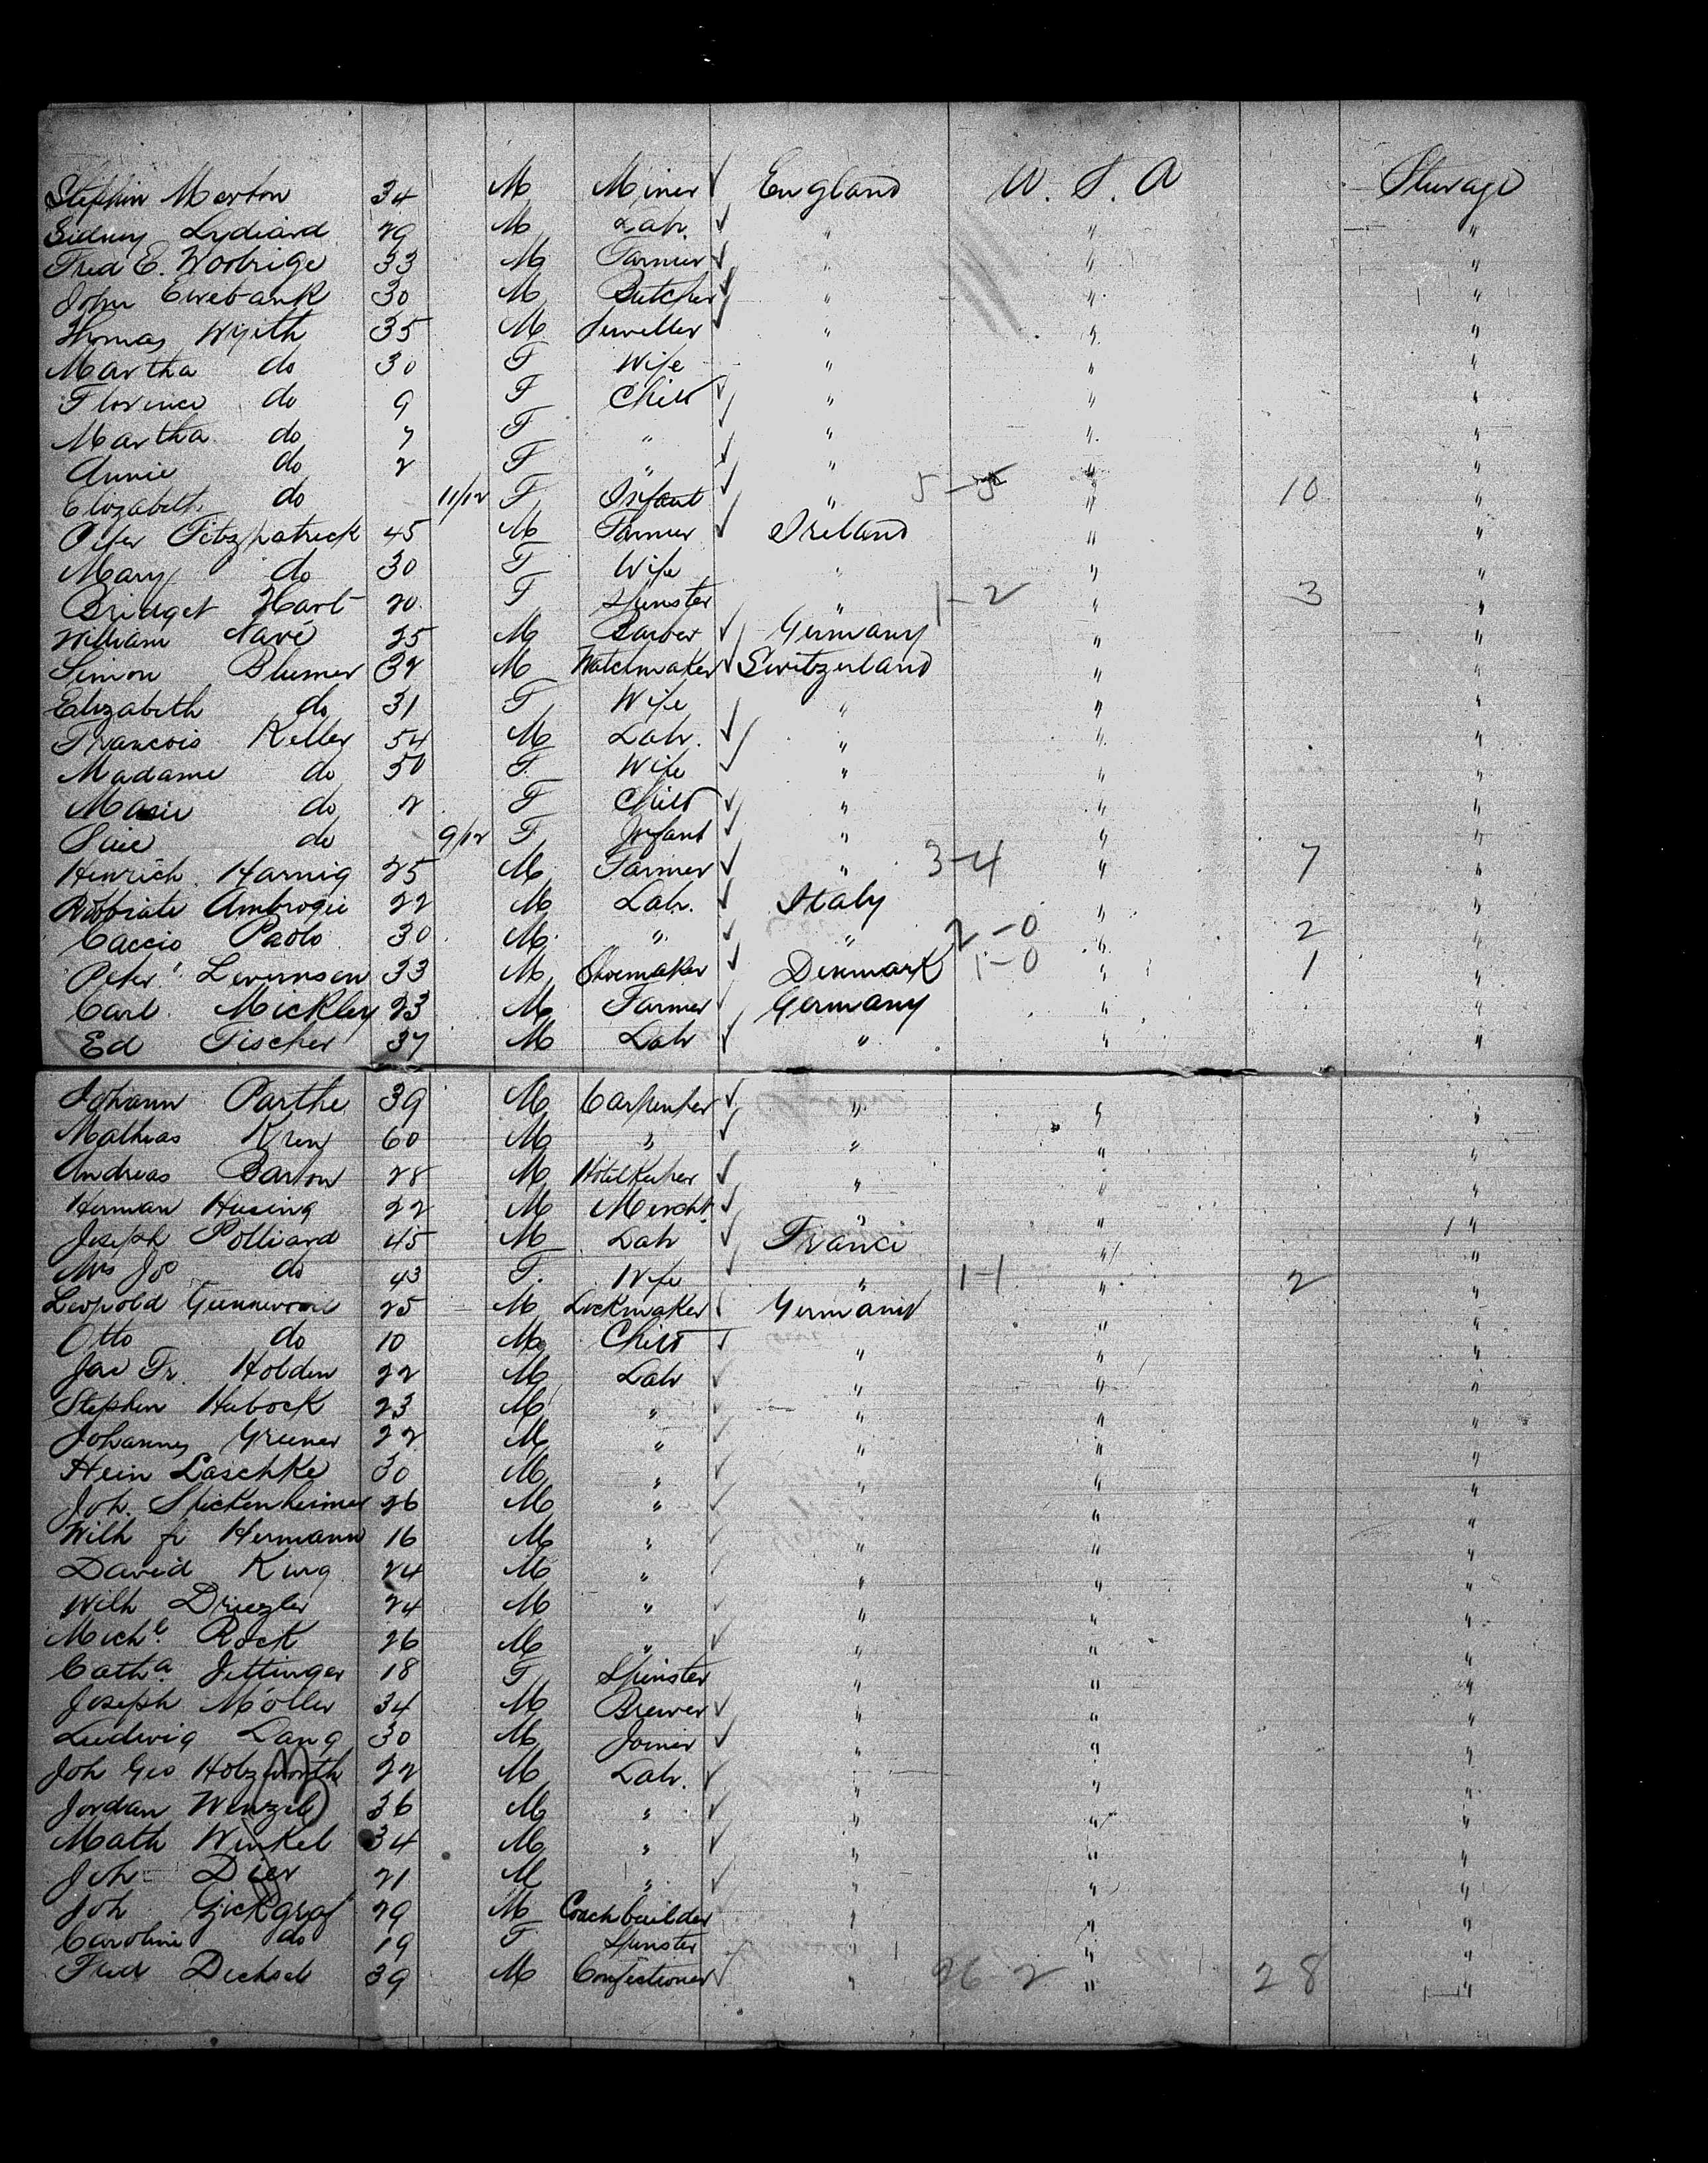 Stephin Merton 34 M Miner ✓ England U. S. A Steerage
Sidney Lydiard 29 M Labr. ✓ " " "
Fred E. Woobrige 33 M Farmer ✓ " " "
John Ewebank 30 M Butcher ✓ " " "
Thomas Wyith 35 M Jeweller ✓ " " "
Martha do 30 F Wife " " "
Florence do 9 F Child ✓ " " "
Martha do 7 F " ✓ " " "
Annie do 2 F " ✓ " " "
Elizabeth do 11/12 F Infant ✓ " 5-5 " 10 "
Peter Fitzpatrick 45 M Farmer ✓ Ireland " "
Mary do 30 F Wife " " "
Bridget Hart 20 F Spinster " 1-2 " 3 "
William Navé 25 M Barber ✓ Germany " "
Simon Blumer 32 M Watchmaker ✓ Switzerland " "
Elizabeth do 31 F Wife " " "
Francois Keller 54 M Labr. ✓ " " "
Madame do 50 F. Wife ✓ " " "
Marie do 2 F Child ✓ " " "
do 9/12 F Infant ✓ " " "
Henrich Harnig 25 M Farmer ✓ " 3-4 " 7 "
Ambrogie 22 M Labr. ✓ Italy " "
Caccio Paolo 30 M " ✓ " 2-0 " 2 "
Peter Levernsen 33 M Shoemaker ✓ Denmark 1-0 " 1 "
Carl Mickley 23 M Farmer ✓ Germany " "
Ed Fischer 37 M Labr ✓ " " "
Johann Parthe 39 M Carpenter ✓ " " "
Mathias Kren 60 M " ✓ " " "
Andreas Barton 28 M Hotelkeeper ✓ " " "
Herman Hising 22 M Mercht. ✓ " " "
Joseph Polliard 45 M Labr ✓ France " "
Mrs Jo do 43 F. Wife ✓ " 1-1 " 2 "
Leopold Gunnewood 25 M Lockmaker ✓ Germany " "
Otto do 10 M Child ✓ " " "
Jac Fr. Holden 22 M Labr ✓ " " "
Stephen Hubock 23 M " ✓ " " "
Johannes Greener 22 M " ✓ " " "
Hein Laschke 30 M " ✓ " " "
Joh. Stickenheimer 26 M " ✓ " " "
Wilh fr Hermann 16 M " ✓ " " "
David King 24 M " ✓ " " "
Wilh Driezler 24 M " ✓ " " "
Michl. Rock 26 M " ✓ " " "
Catha Jettinger 18 F Spinster " " "
Joseph Möller 34 M Brewer ✓ " " "
Ludwig Lang 30 M Joiner ✓ " " "
Joh Geo Holzworth 22 M Labr. ✓ " " "
Jordan Wenzil 36 M " ✓ " " "
Math Winkel 34 M " ✓ " " "
Joh Dier 21 M " ✓ " " "
Joh Gickgraf 29 M Coachbuilder " " "
Caroline do 19 F Spinster " "
Fred Dechsel 39 M Confectioner ✓ " 26-2 " 28 "